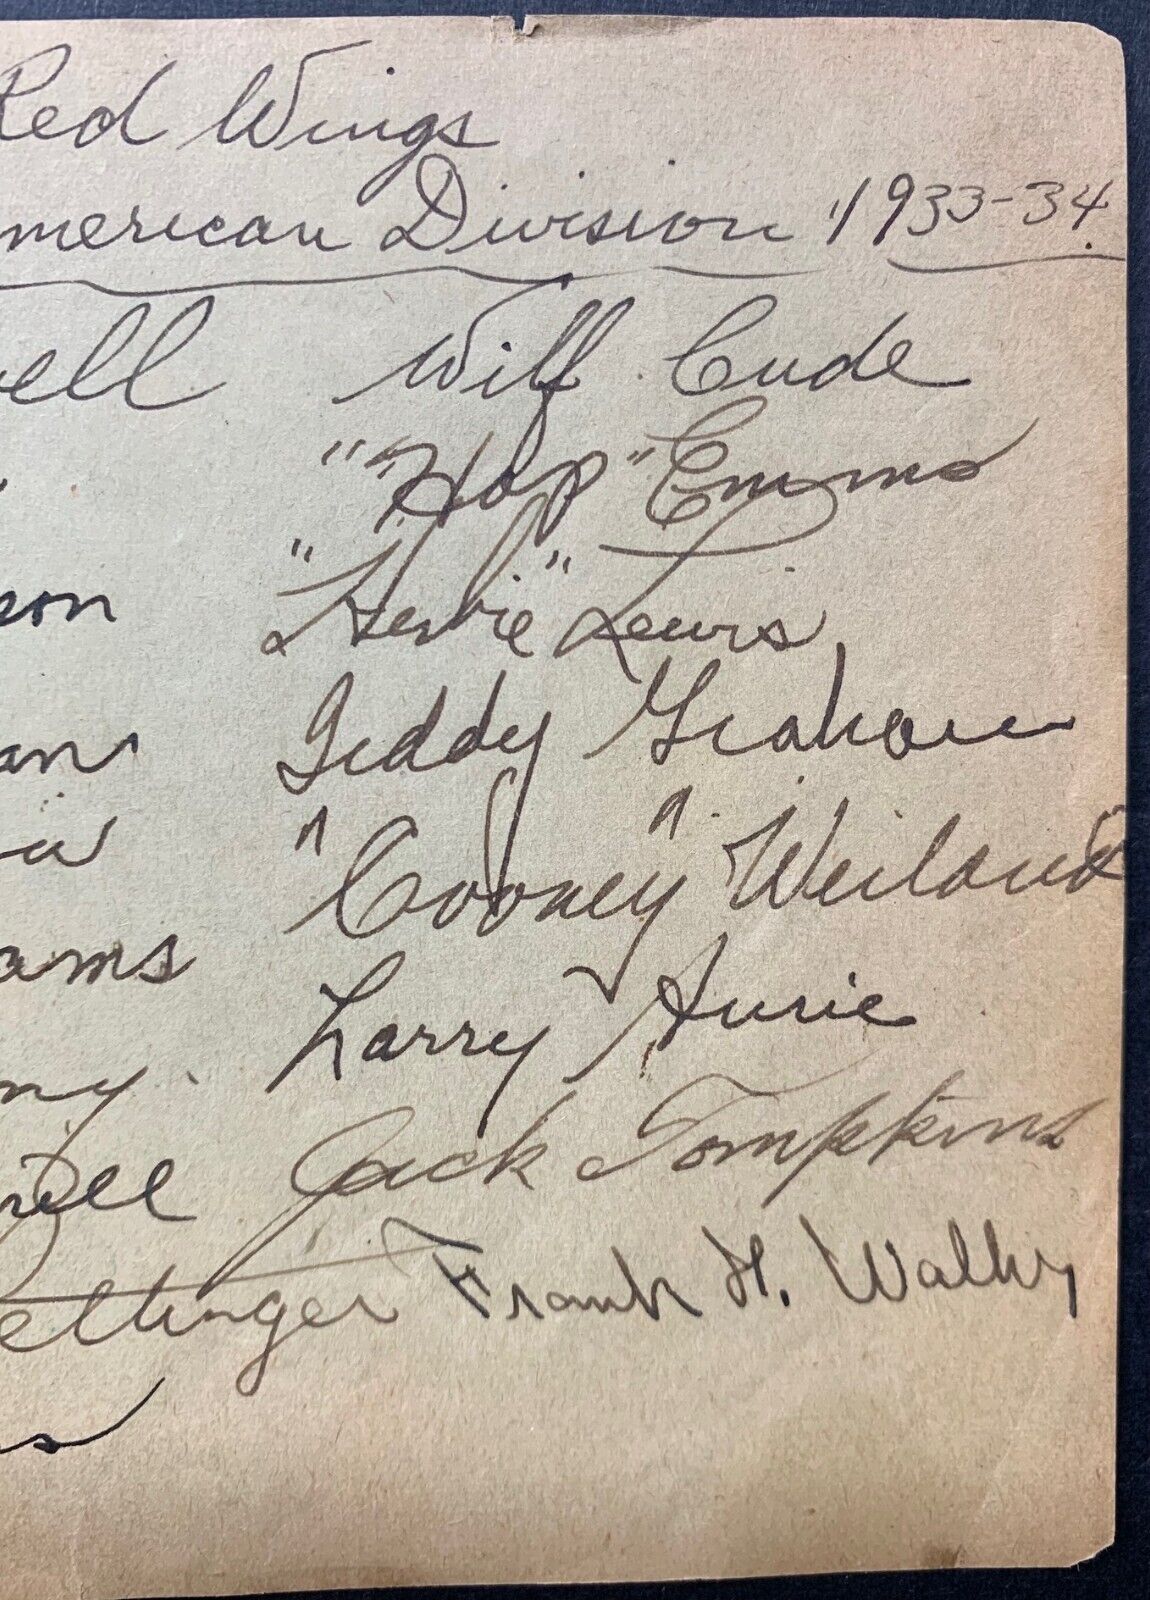 Red Wings
American Division 1933-34.
ell Wilf Cude
"Hap" Emms
eon "Herbie" Lewis
an Teddy Graham
"Cooney" Weiland
ams Larry Aurie
ny. Jack Tompkins
ell
ettinger Frank H. Walky
s